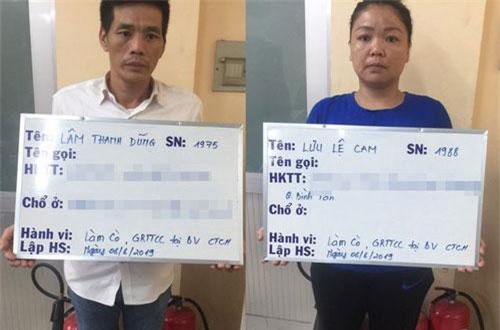 Tên: LÂM THANH DŨNG SN: 1975
Tên gọi:
HKTT:
Chổ ở:
Hành vi: Làm Cò, GRTTCC tại BV CTCH
Lập HS: Ngày 06/6/2019
Tên: LƯU LỆ CAM SN: 1988
Tên gọi:
HKTT:
Q. Bình Tân
Chổ ở:
Hành vi: Làm Cò, GRTTCC tại BV CTCH
Lập HS: Ngày 06/6/2019